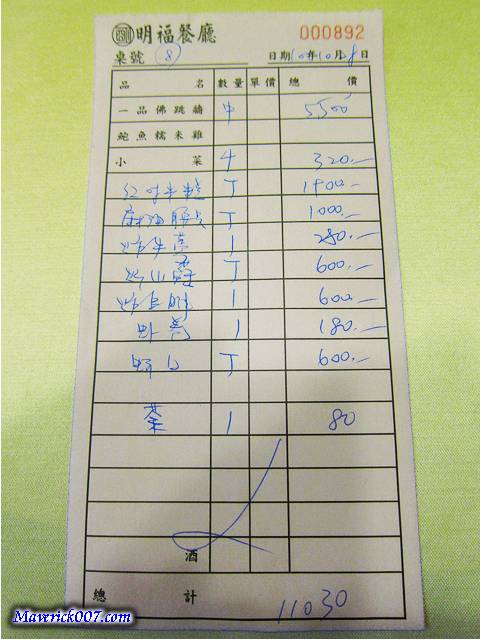 明福餐廳 000892
桌號 8 日期 年10月 日
品名 數量 單價 總價
一品佛跳牆 中 5500
鮑魚糯米雞
小菜 4 320.-
红寸米糕 丁 1900.-
麻油腰只 丁 1000.-
1 250.-
丁 600.-
1 600.-
1 180.-
丁 600.-
茶 1 80
酒
總計 11030
Maverick007.com